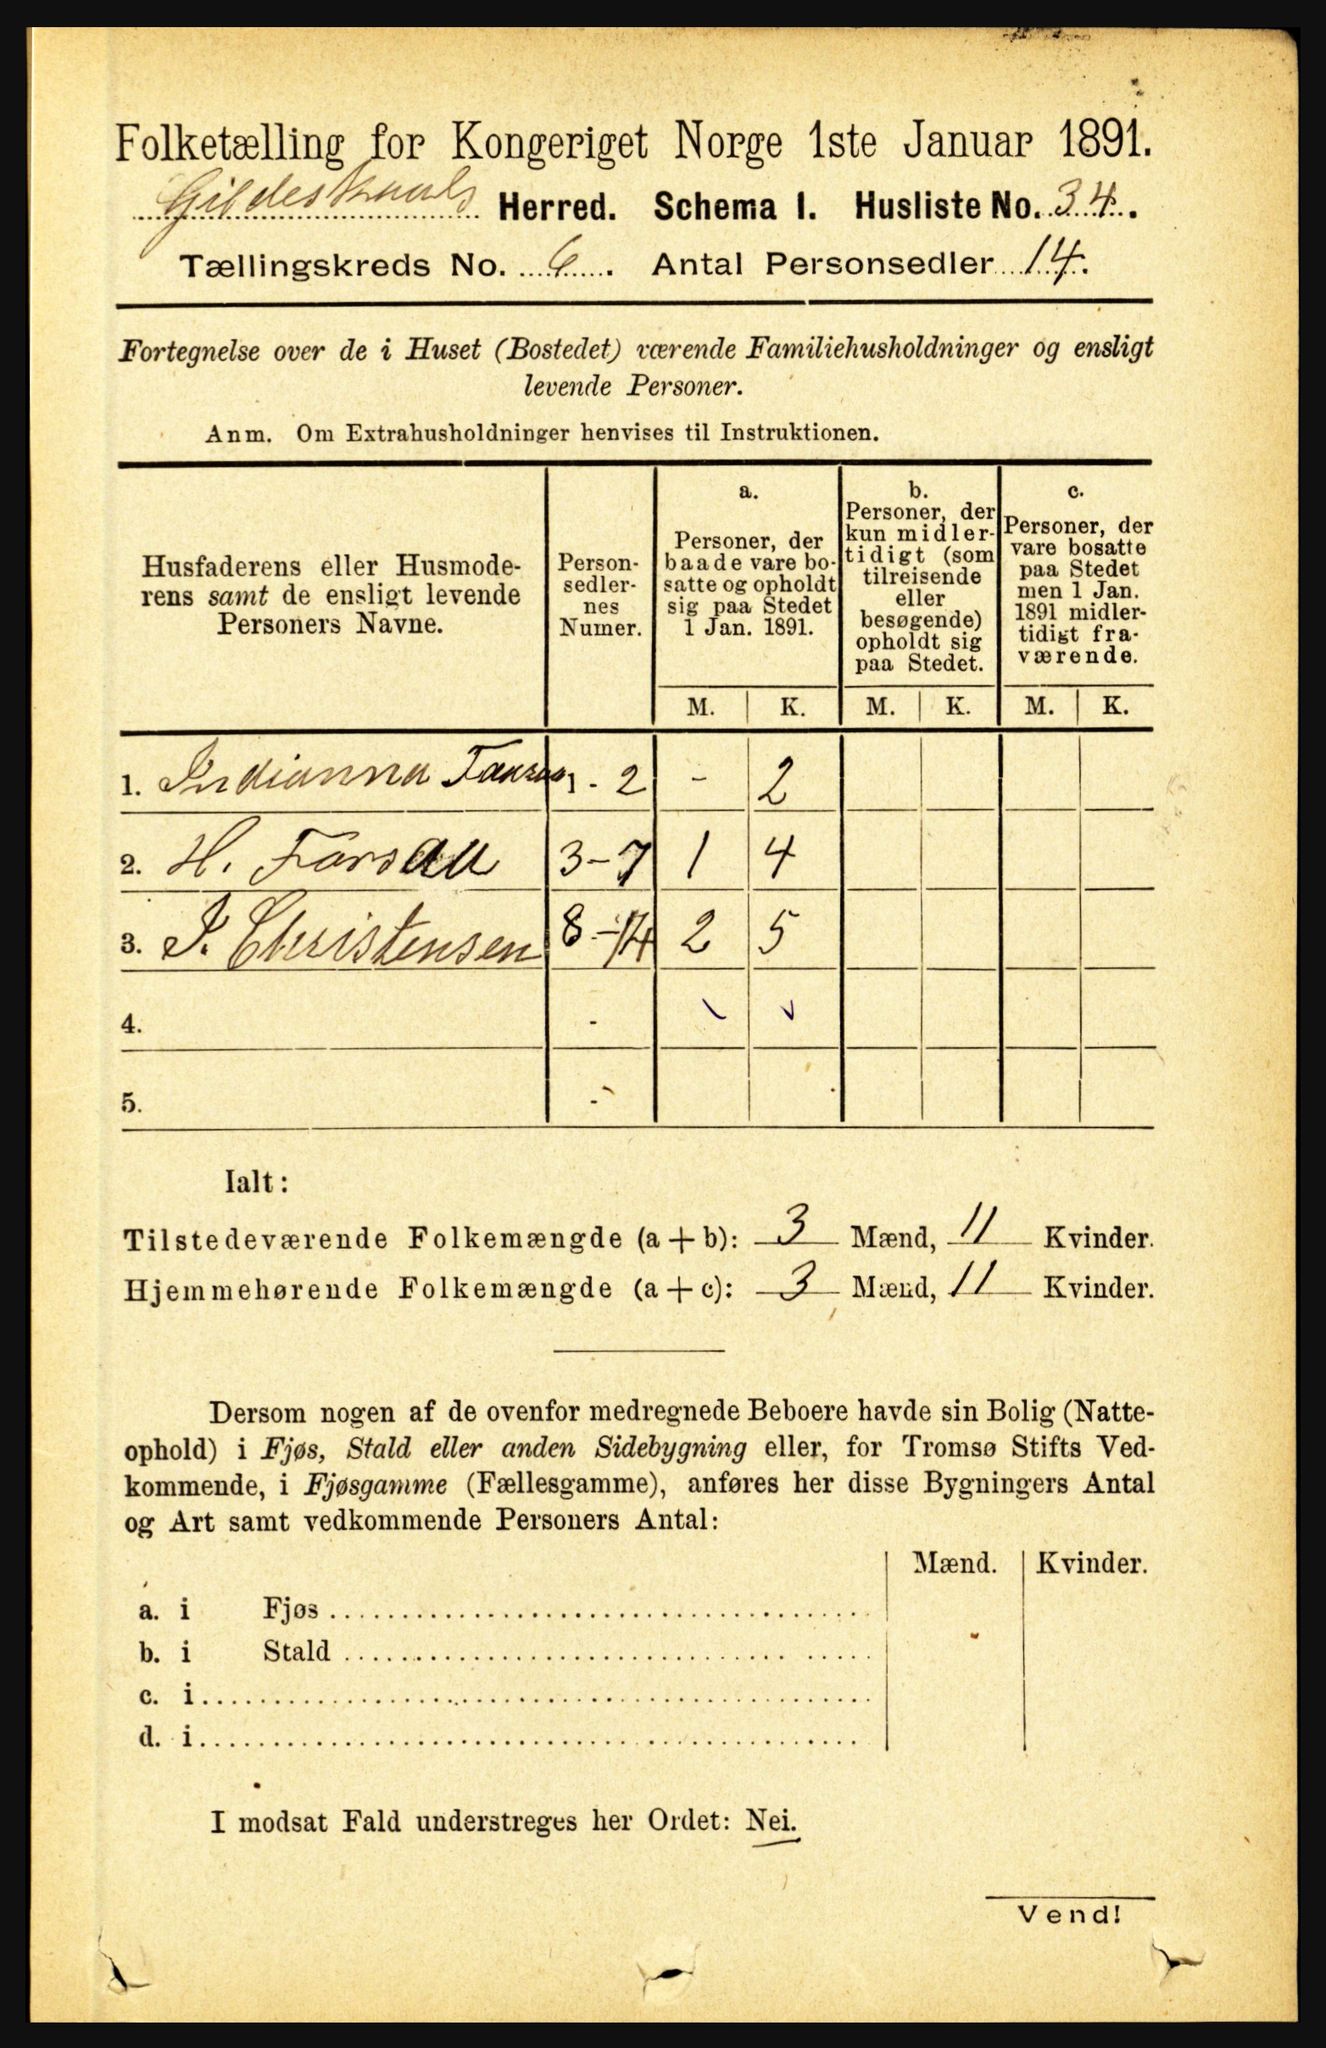 Folketælling for Kongeriget Norge 1ste Januar 1891.
Gildeskaals Herred. Schema I. Husliste No. 34.
Tællingskreds No. 6. Antal Personsedler 14.
Fortegnelse over de i Huset (Bostedet) værende Familiehusholdninger og ensligt
levende Personer.
Anm. Om Extrahusholdninger henvises til Instruktionen.
Husfaderens eller Husmode-
rens samt de ensligt levende
Personers Navne.
Person-
sedler-
nes
Numer.
a.
Personer, der
baade vare bo-
satte og opholdt
sig paa Stedet
1 Jan. 1891.
b.
Personer, der
kun midler-
tidigt (som
tilreisende
eller
besøgende)
opholdt sig
paa Stedet.
c.
Personer, der
vare bosatte
paa Stedet
men 1 Jan.
1891 midler-
tidigt fra-
værende.
M. K. M. K. M. K.
1. Indianna 1 - 2 - 2
2. H. 3 - 7 1 4
3. J. Christensen 8 - 14 2 5
4. -
5. -
Ialt:
Tilstedeværende Folkemængde (a + b): 3 Mænd, 11 Kvinder.
Hjemmehørende Folkemængde (a + c): 3 Mænd, 11 Kvinder.
Dersom nogen af de ovenfor medregnede Beboere havde sin Bolig (Natte-
ophold) i Fjøs, Stald eller anden Sidebygning eller, for Tromsø Stifts Ved-
kommende, i Fjøsgamme (Fællesgamme), anføres her disse Bygningers Antal
og Art samt vedkommende Personers Antal:
Mænd. Kvinder.
a. i Fjøs
b. i Stald
c. i
d. i
I modsat Fald understreges her Ordet: Nei.
Vend!